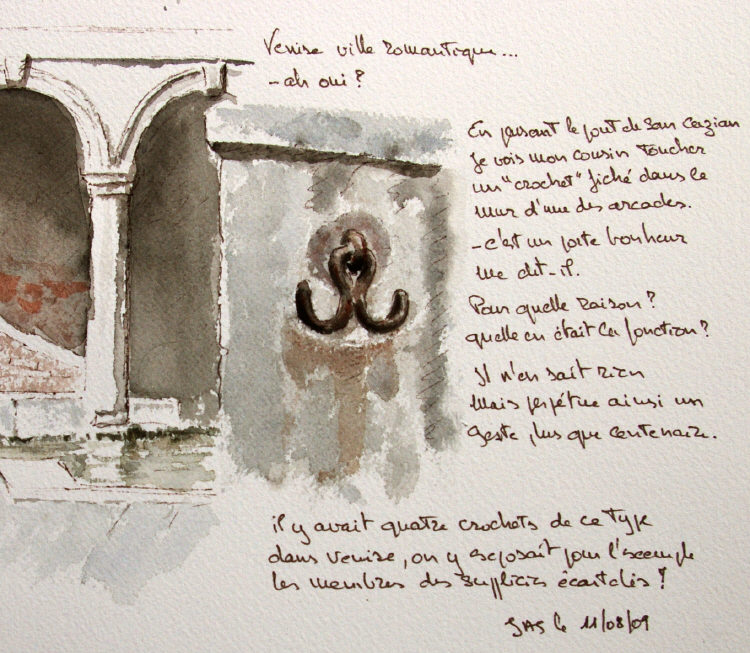 Venise ville romantique...
- ah oui ?
En passant le pont de San Cazian
je vois mon cousin toucher
un "crochet" fiché dans le
mur d'une des arcades.
- c'est un porte bonheur
me dit-il.
Pour quelle raison ?
quelle en était la fonction ?
Il n'en sait rien
mais perpétue ainsi un
geste plus que centenaire.
il y avait quatre crochets de ce type
dans Venise, on y exposait pour l'exemple
les membres des suppliciés écartelés !
JAS le 11/08/09